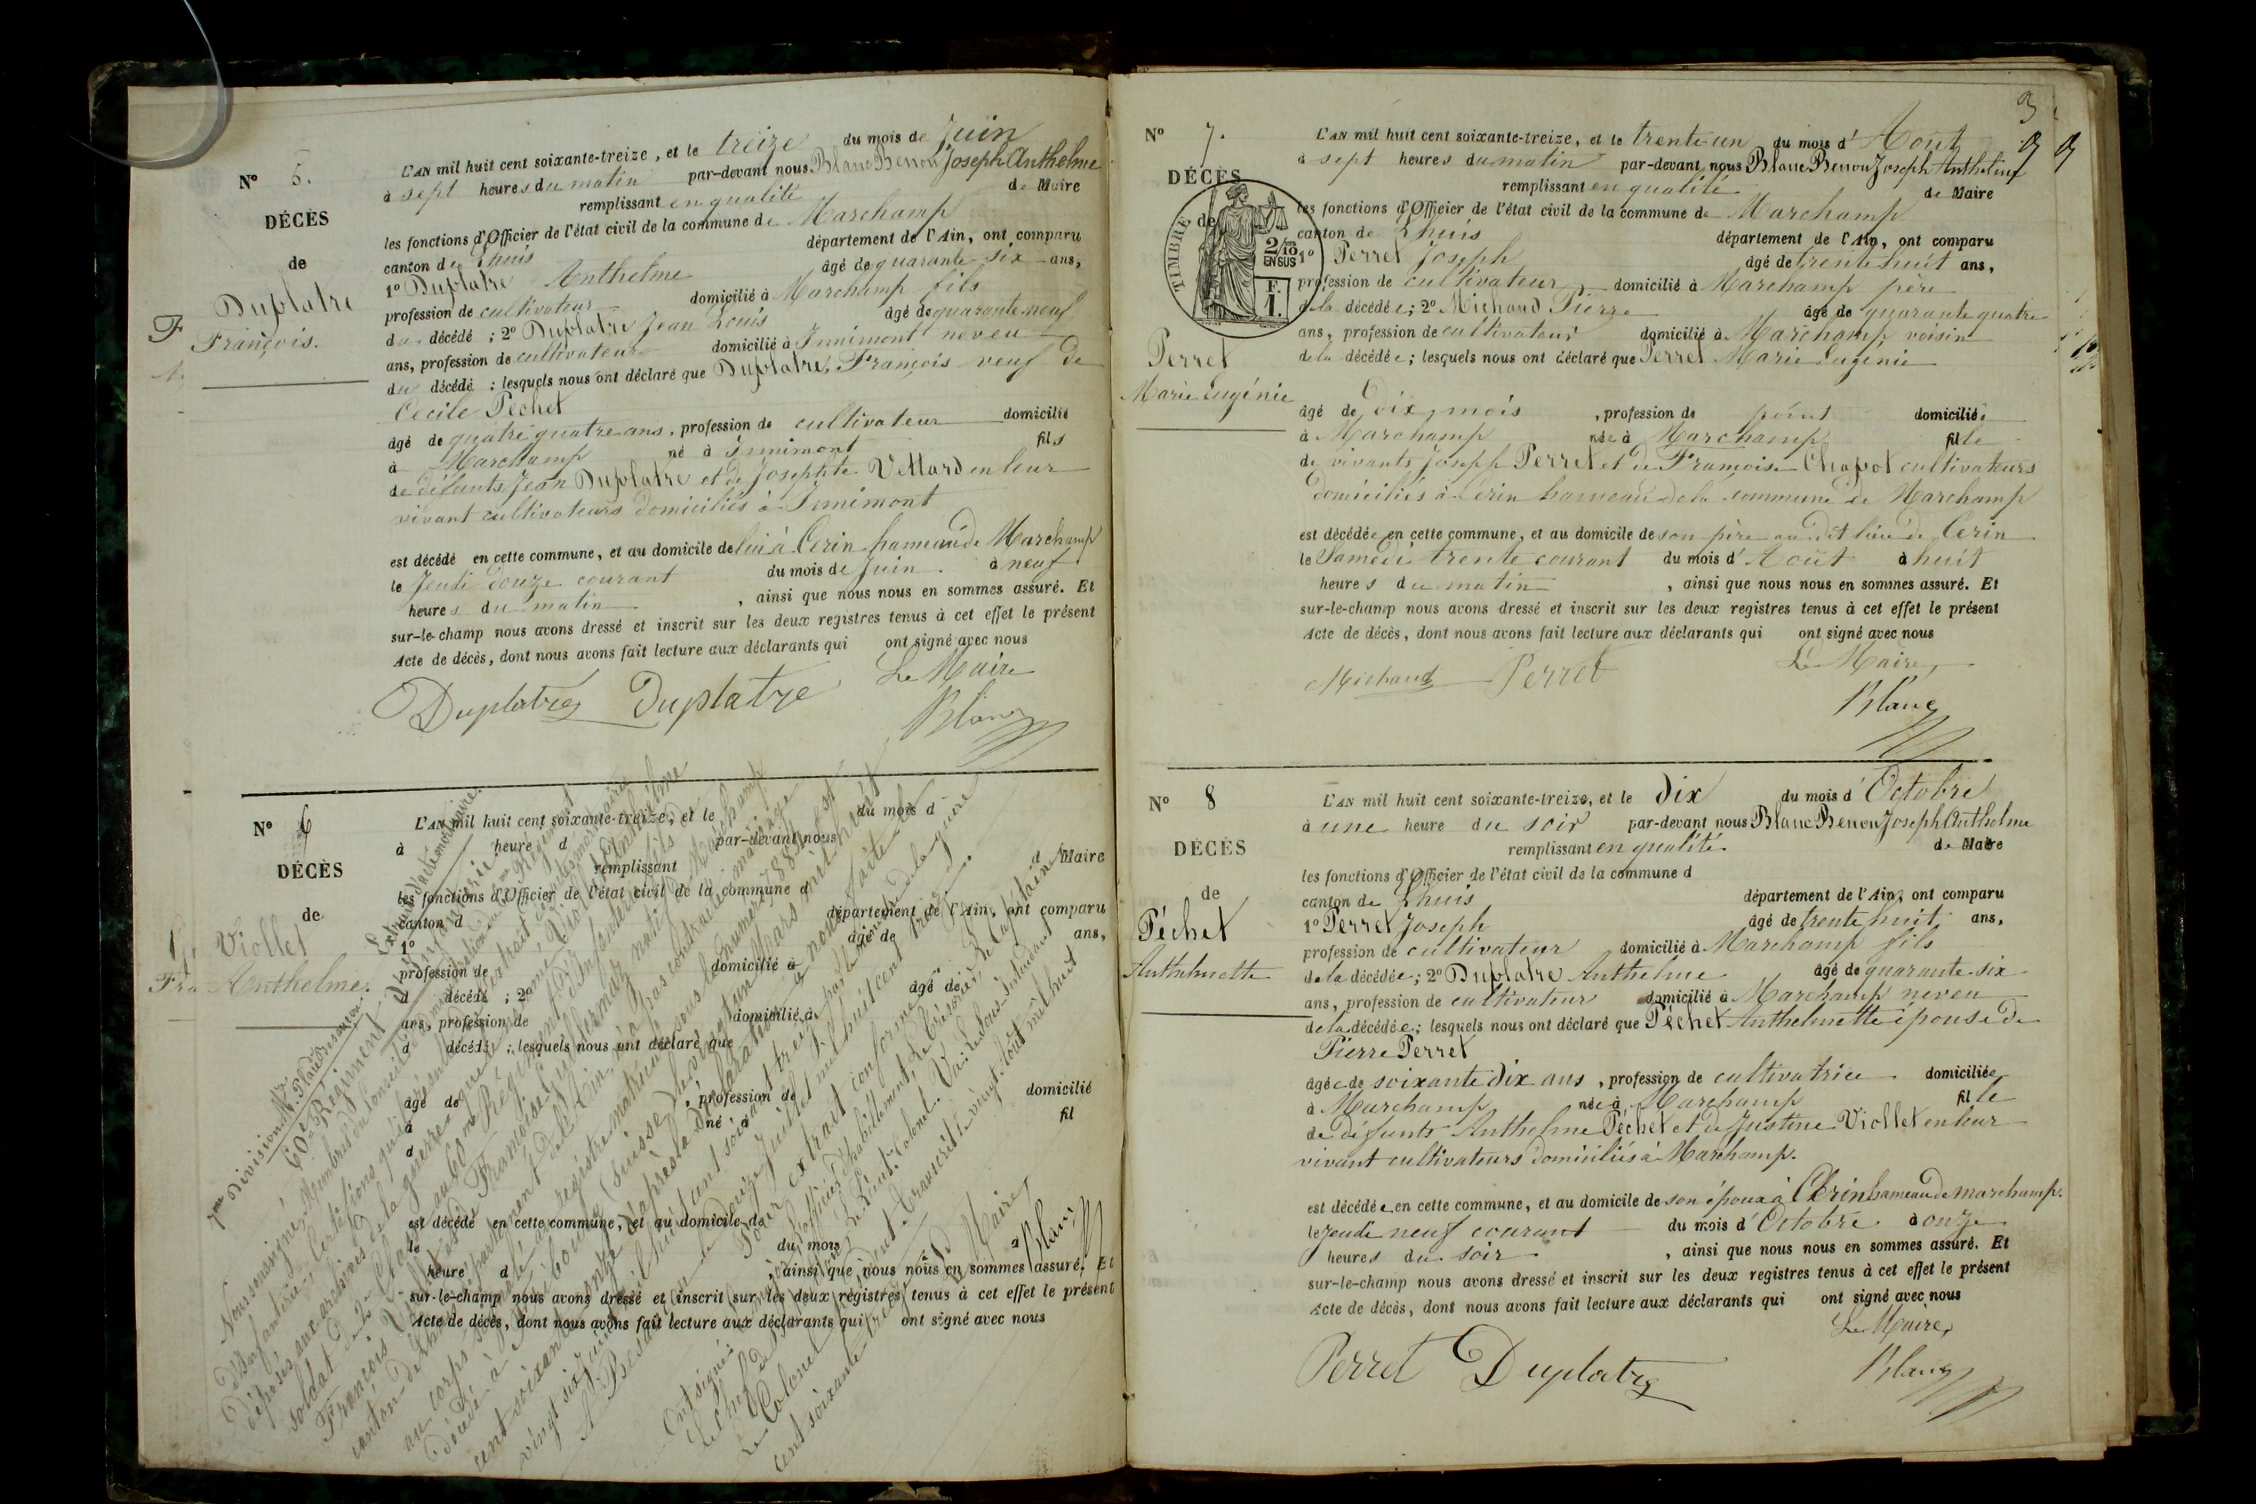 N° 5.
DÉCÈS
de
Duplatre
François.
L'AN mil huit cent soixante-treize, et le treize du mois de Juin
à sept heures du matin par-devant nous Blanc Benon Joseph Anthelme
remplissant en qualité de Maire
les fonctions d'Officier de l'état civil de la commune de Marchamp
canton de Lhuis département de l'Ain, ont comparu
1° Duplatre Anthelme âgé de quarante six ans,
profession de cultivateur domicilié à Marchamp fils
du décédé ; 2° Duplatre Jean Louis âgé de quarante neuf
ans, profession de cultivateur domicilié à Innimont neveu
du décédé ; lesquels nous ont déclaré que Duplatre, François veuf de
Cecile Péchet
âgé de quatre quatre ans, profession de cultivateur domicilié
à Marchamp né à Innimont fils
de défunts Jean Duplatre et de Josephte Vettard en leur
vivant cultivateurs domiciliés à Innimont
est décédé en cette commune, et au domicile de lui à Cerin hameau de Marchamp
le Jeudi douze courant du mois de Juin à neuf
heures du matin, ainsi que nous nous en sommes assuré. Et
sur-le-champ nous avons dressé et inscrit sur les deux registres tenus à cet effet le présent
Acte de décès, dont nous avons fait lecture aux déclarants qui ont signé avec nous
Le Maire
Duplatre Duplatre Blanc
N° 6
DÉCÈS
de
Viollet
Anthelme.
L'AN mil huit cent soixante-treize, et le du mois d
à heure d par-devant nous
remplissant d Maire
les fonctions d'Officier de l'état civil de la commune d
canton d département de l'Ain, ont comparu
1° âgé de ans,
profession de domicilié à
d décédé ; 2° âgé de
ans, profession de domicilié à
d décédé ; lesquels nous ont déclaré que
âgé de profession de domicilié
à né à fil
d
est décédé en cette commune, et au domicile de
le du mois à
heure d, ainsi que nous nous en sommes assuré. Et
sur-le-champ nous avons dressé et inscrit sur les deux registres tenus à cet effet le présent
Acte de décès, dont nous avons fait lecture aux déclarants qui ont signé avec nous
Extrait d'acte mortuaire.
7me Division Mre Place de Besançon
60e Régiment d'infanterie
Nous soussignés, Membres du Conseil d'administration du Régiment
déposés aux archives de la guerre
soldat de 2e classe au 60me Régiment d'Infanterie, fils de
François Viollet et de Françoise Guillermaz
canton de Lhuis département de l'Ain, n'a pas contracté mariage
au corps
décédé à
cent soixante onze d'après la déclaration à nous faite le
vingt six
A Besançon le douze Juillet mil huit cent
Pour extrait conforme
Ont signé
Le Maire
Blanc
3
N° 7.
DÉCÈS
de
TIMBRE
2/10 EN SUS
F. 1.
Perret
Marie Eugénie
L'AN mil huit cent soixante-treize, et le trente un du mois d'Août
à sept heures du matin par-devant nous Blanc Benon Joseph Anthelme
remplissant en qualité de Maire
les fonctions d'Officier de l'état civil de la commune de Marchamp
canton de Lhuis département de l'Ain, ont comparu
1° Perret Joseph âgé de trente huit ans,
profession de cultivateur, domicilié à Marchamp père
de la décédée ; 2° Michaud Pierre âgé de quarante quatre
ans, profession de cultivateur domicilié à Marchamp voisin
de la décédée ; lesquels nous ont déclaré que Perret Marie Eugénie
âgé de dix mois, profession de point domicilié
à Marchamp née à Marchamp fille
de vivants Joseph Perret et de Françoise Chapot cultivateurs
domiciliés à Cerin hameau de la commune de Marchamp
est décédée en cette commune, et au domicile de son père au dit lieu de Cerin
le Samedi trente courant du mois d'Août à huit
heures du matin, ainsi que nous nous en sommes assuré. Et
sur-le-champ nous avons dressé et inscrit sur les deux registres tenus à cet effet le présent
Acte de décès, dont nous avons fait lecture aux déclarants qui ont signé avec nous
Le Maire,
Michaud Perret Blanc
N° 8
DÉCÈS
de
Péchet
Anthelmette
L'AN mil huit cent soixante-treize, et le dix du mois d'Octobre
à une heure du soir par-devant nous Blanc Benon Joseph Anthelme
remplissant en qualité de Maire
les fonctions d'Officier de l'état civil de la commune d
canton de Lhuis département de l'Ain, ont comparu
1° Perret Joseph âgé de trente huit ans,
profession de cultivateur domicilié à Marchamp fils
de la décédée ; 2° Duplatre Anthelme âgé de quarante six
ans, profession de cultivateur domicilié à Marchamp neveu
de la décédée ; lesquels nous ont déclaré que Péchet Anthelmette épouse de
Pierre Perret
âgée de soixante dix ans, profession de cultivatrice domiciliée
à Marchamp née à Marchamp fille
de défunts Anthelme Péchet et de Justine Viollet en leur
vivant cultivateurs domiciliés à Marchamp.
est décédée en cette commune, et au domicile de son époux à Cerin hameau de marchamp.
le Jeudi neuf courant du mois d'Octobre à onze
heures du soir, ainsi que nous nous en sommes assuré. Et
sur-le-champ nous avons dressé et inscrit sur les deux registres tenus à cet effet le présent
Acte de décès, dont nous avons fait lecture aux déclarants qui ont signé avec nous
Le Maire,
Perret Duplatre Blanc